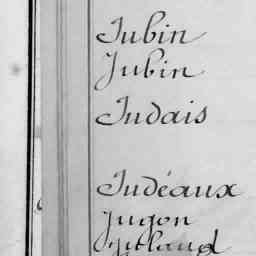 Jubin
Jubin
Judais
Judéaux
Jugon
Juland